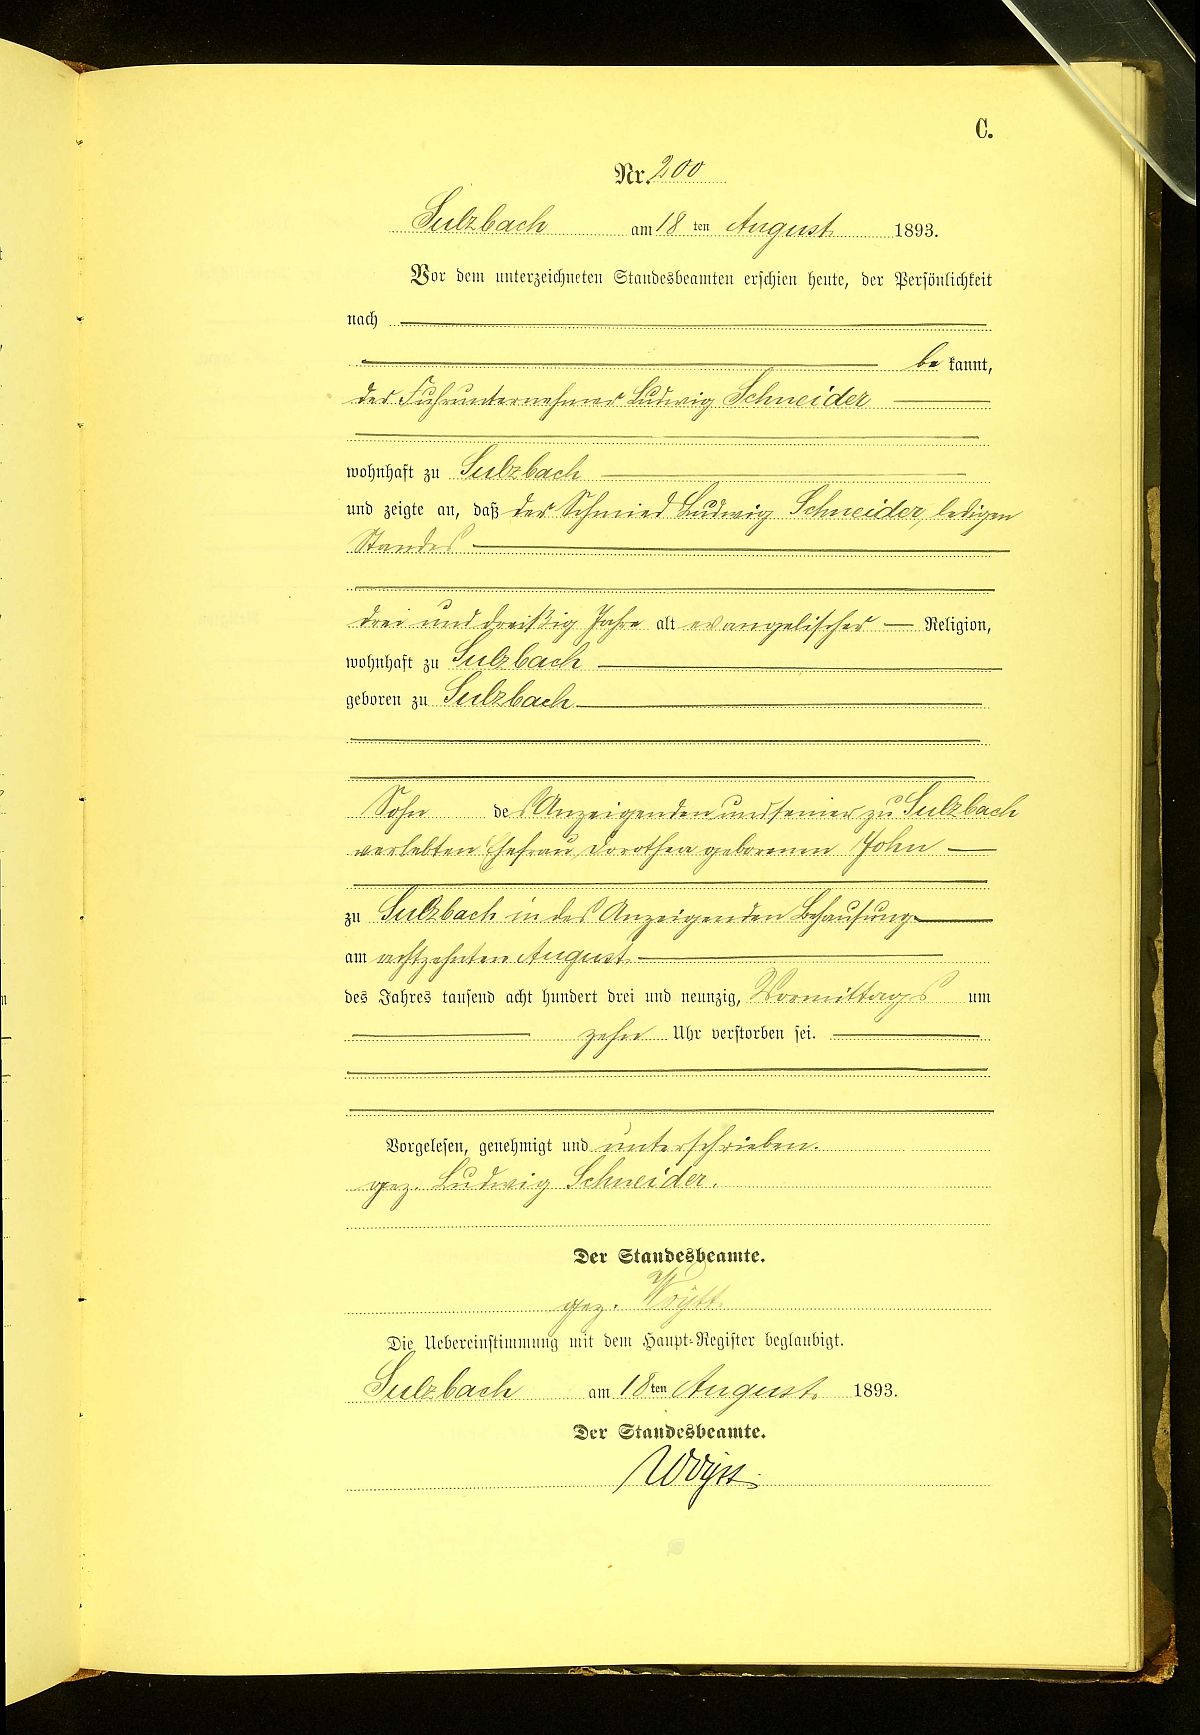 C.
Nr. 200
Sulzbach am 18 ten August 1893.
Vor dem unterzeichneten Standesbeamten erschien heute, der Persönlichkeit
nach
be kannt,
der Fuhrunternehmer Ludwig Schneider
wohnhaft zu Sulzbach
und zeigte an, daß der Schmied Ludwig Schneider, ledigen
Standes
drei und dreißig Jahre alt evangelischer Religion,
wohnhaft zu Sulzbach
geboren zu Sulzbach
Sohn des Anzeigenden und seiner zu Sulzbach
verlebten Ehefrau Dorothea geborenen John
zu Sulzbach in des Anzeigenden Behausung
am achtzehnten August
des Jahres tausend acht hundert drei und neunzig, Vormittags um
zehn Uhr verstorben sei.
Vorgelesen, genehmigt und unterschrieben.
gez. Ludwig Schneider.
Der Standesbeamte.
gez. Woytt.
Die Uebereinstimmung mit dem Haupt-Register beglaubigt.
Sulzbach am 18 ten August 1893.
Der Standesbeamte.
Woytt.